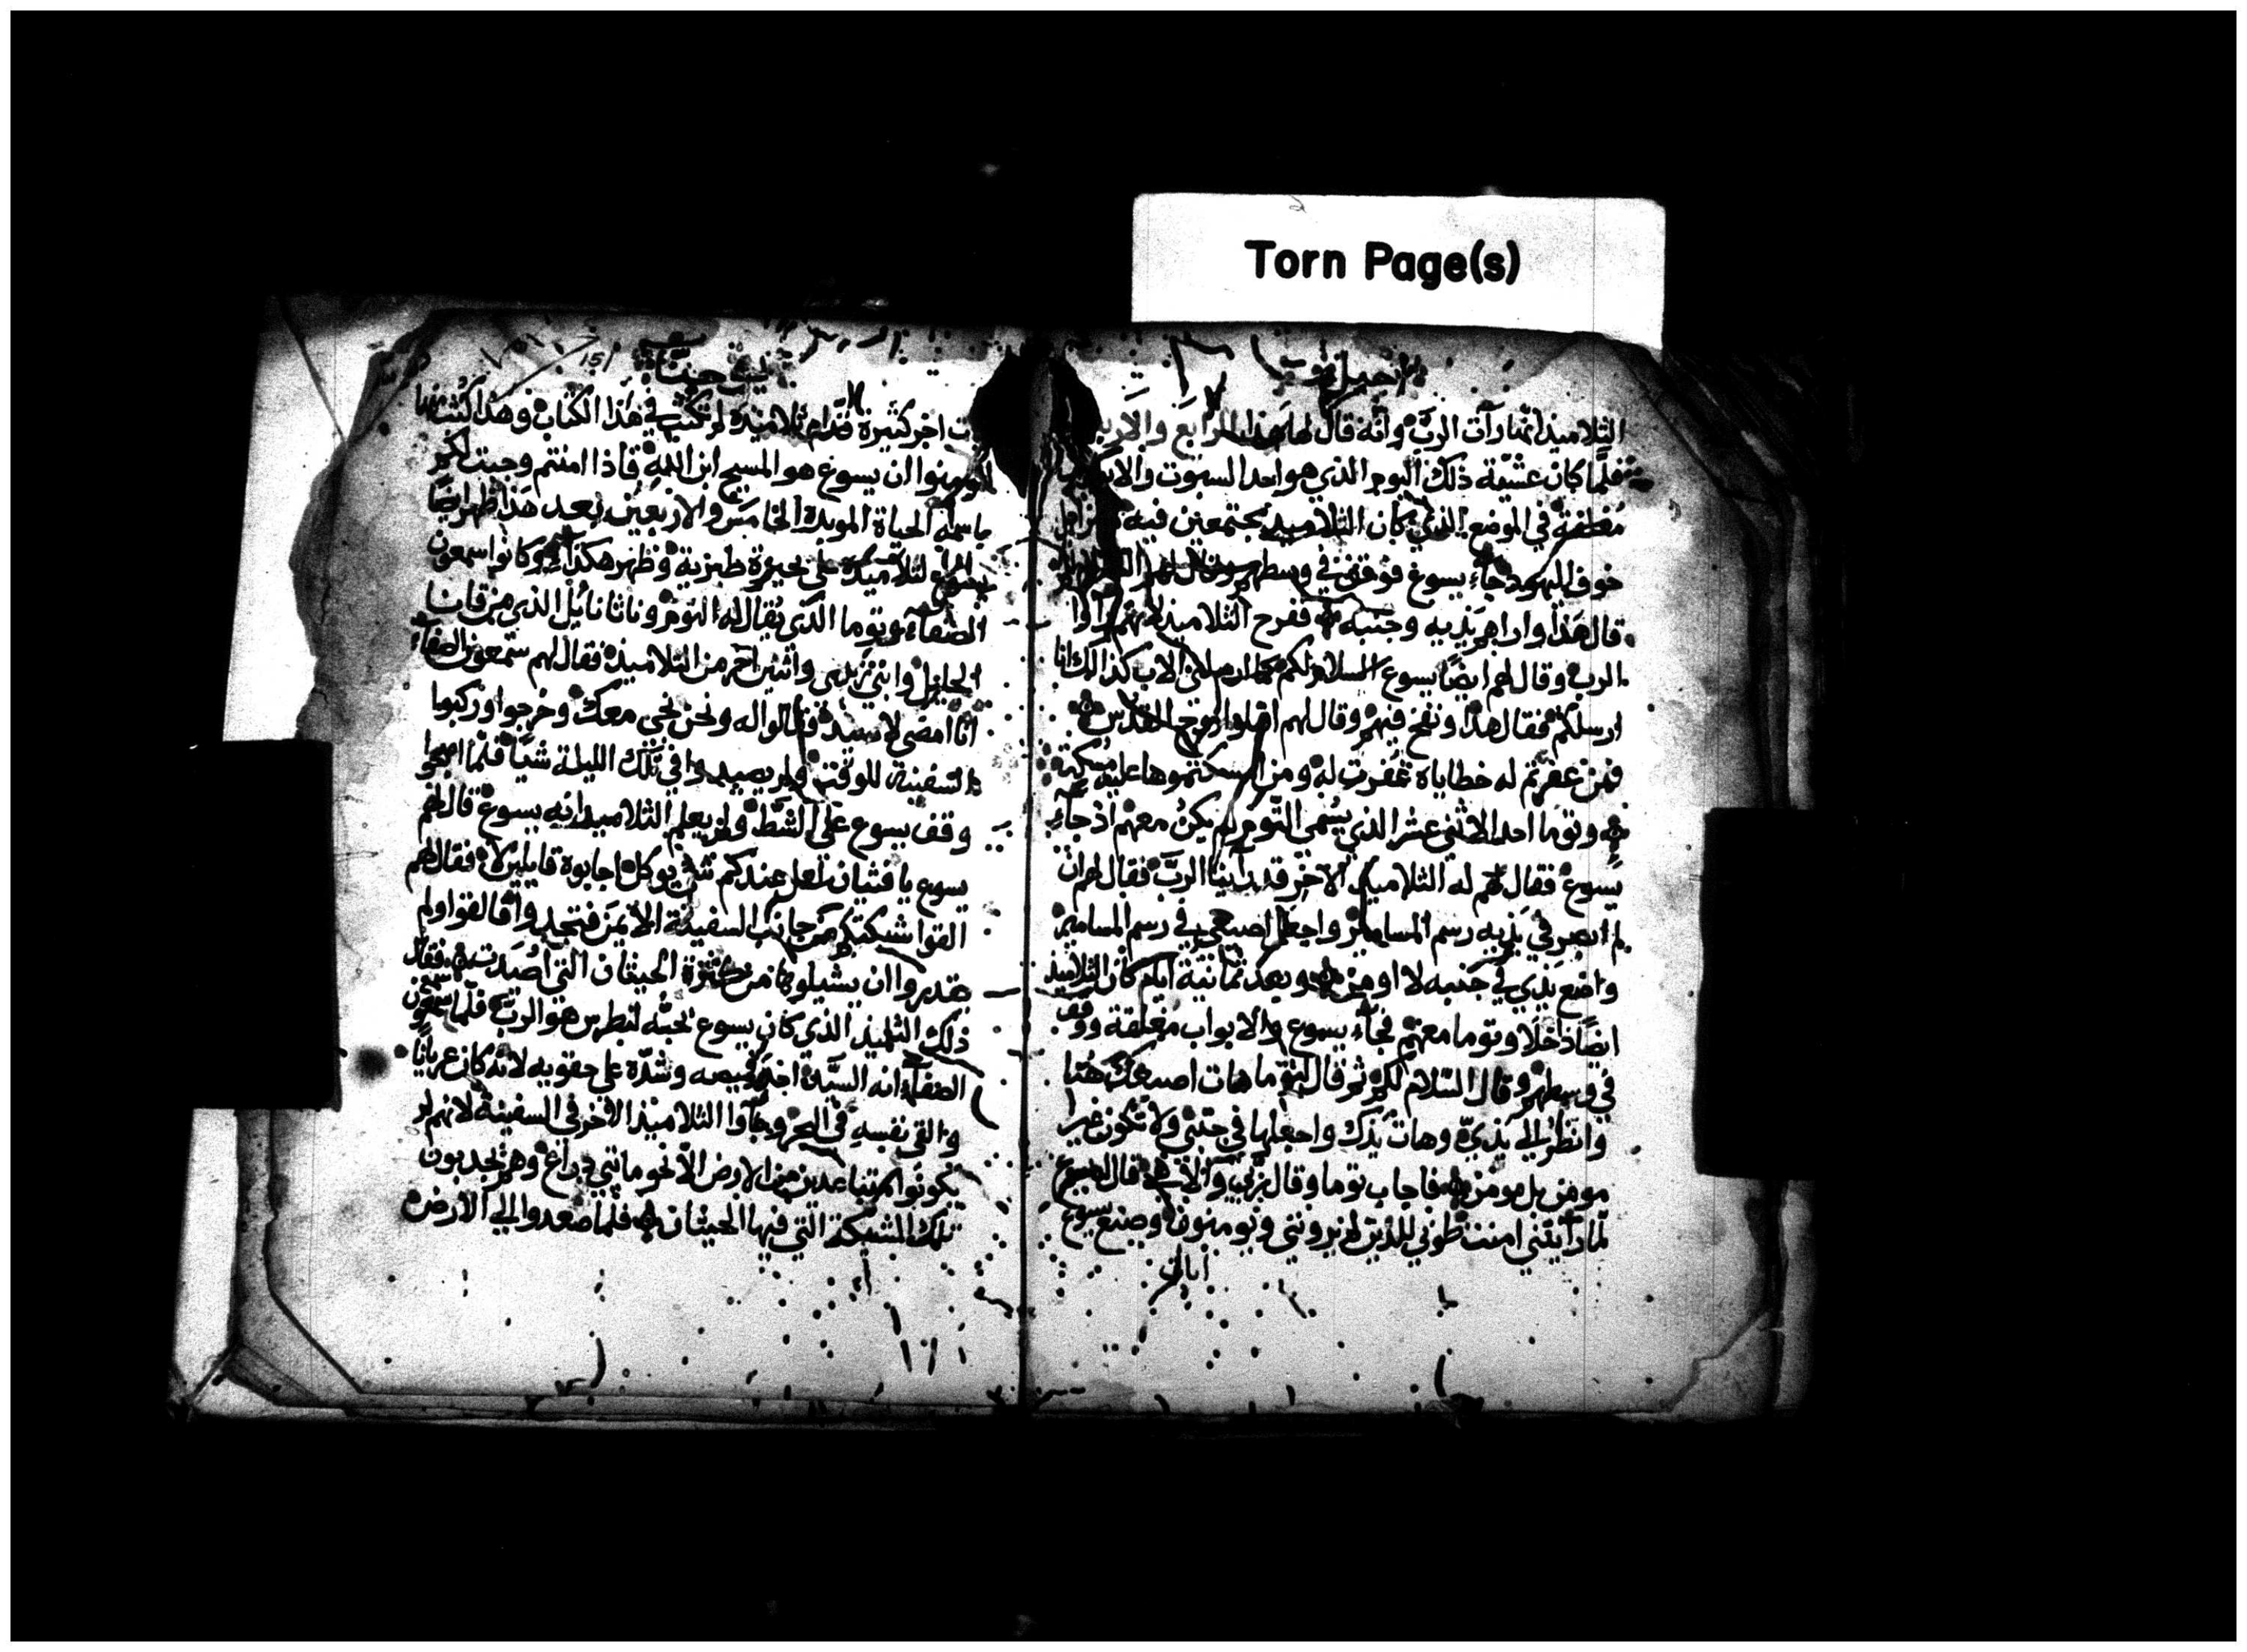 Torn Page(s)
انجيل
التلاميذ انها رآت الرب وانه قال لها هذا الرابع والاربع
فلما كان عشية ذلك اليوم الذي هو احد السبوت والابواب
مغلقة في الموضع الذي كان التلاميذ مجتمعين فيه من اجل
خوف اليهود جآء يسوع فوقف في وسطهم وقال لهم
قال هذا واراهم يديه وجنبه ففرح التلاميذ لانهم راوا
الرب وقال لهم ايضًا يسوع السلام لكم كما ارسلني الاب كذالك انا
ارسلكم فقال هذا ونفخ فيهم وقال لهم اقبلوا روح القدس
فمن غفرتم له خطاياه غُفرت له ومن امسكتموها عليه مُسكت
وتوما احد الاثني عشر الذي يسمى التوم لم يكن معهم اذ جآء
يسوع فقال له التلاميذ الآخر قد راينا الرب فقال لهم ان
لم ابصر في يديه رسم المسامير واجعل اصبعي في رسم المسامير
واضع يدي في جنبه لا اومن وبعد ثمانية ايام كان التلاميذ
ايضًا داخلًا وتوما معهم فجآء يسوع والابواب مغلقة ووقف
في وسطهم وقال السلام لكم ثم قال لتوما هات اصبعك هُنا
وانظر الى يديّ وهات يدك واجعلها في جنبي ولا تكون غير
مومن بل مومن فاجاب توما وقال ربي والاهي قال له يسوع
لما رآيتني امنت طوبى للذين لم يروني ويومنون وصنع يسوع
ايات
151
يوحنا
ات اخر كثيرة قدام تلاميذه لم تكتب في هذا الكتاب وهذا كُتب
لتومنوا ان يسوع هو المسيح ابن الله فاذا امنتم وجبت لكم
باسمه الحياة الموبدة الخامس والاربعين بعد هذا ظهر ايضًا
يسوع لتلاميذه على بحيرة طبرية وظهر هكذا وكانوا سمعون
الصفآء وتوما الذي يقال له التوم وناثانائيل الذي من قانا
الجليل وابني زبدي واثنين اخر من التلاميذ فقال لهم سمعون الصفآء
انا امضي لاصيد فقالوا له ونحن نجي معك وخرجوا وركبوا
السفينة للوقت ولم يصيدوا في تلك الليلة شيًا فلما اصبحوا
وقف يسوع على الشط ولم يعلم التلاميذ انه يسوع قال لهم
يسوع يا فتيان لعل عندكم شي يوكل اجابوه قايلين لا فقال لهم
القوا شبكتكم من جانب السفينة الايمن فتجدوا فالقوا ولم
يقدروا ان يشيلوها من كثرة الحيتان التي اصيدت فقال
ذلك التلميذ الذي كان يسوع يحبه لبطرس هو الرب فلما سمع سمعون
الصفآء انه السيد اخذ قميصه وشدّه على حقويه لانه كان عريانًا
والقى نفسه في البحر وجآوا التلاميذ الاخر في السفينة لانهم لم
يكونوا متباعدين من الارض الا نحو مائتي ذراع وهم يجدبون
تلك الشبكة التي فيها الحيتان فلما صعدوا الى الارض